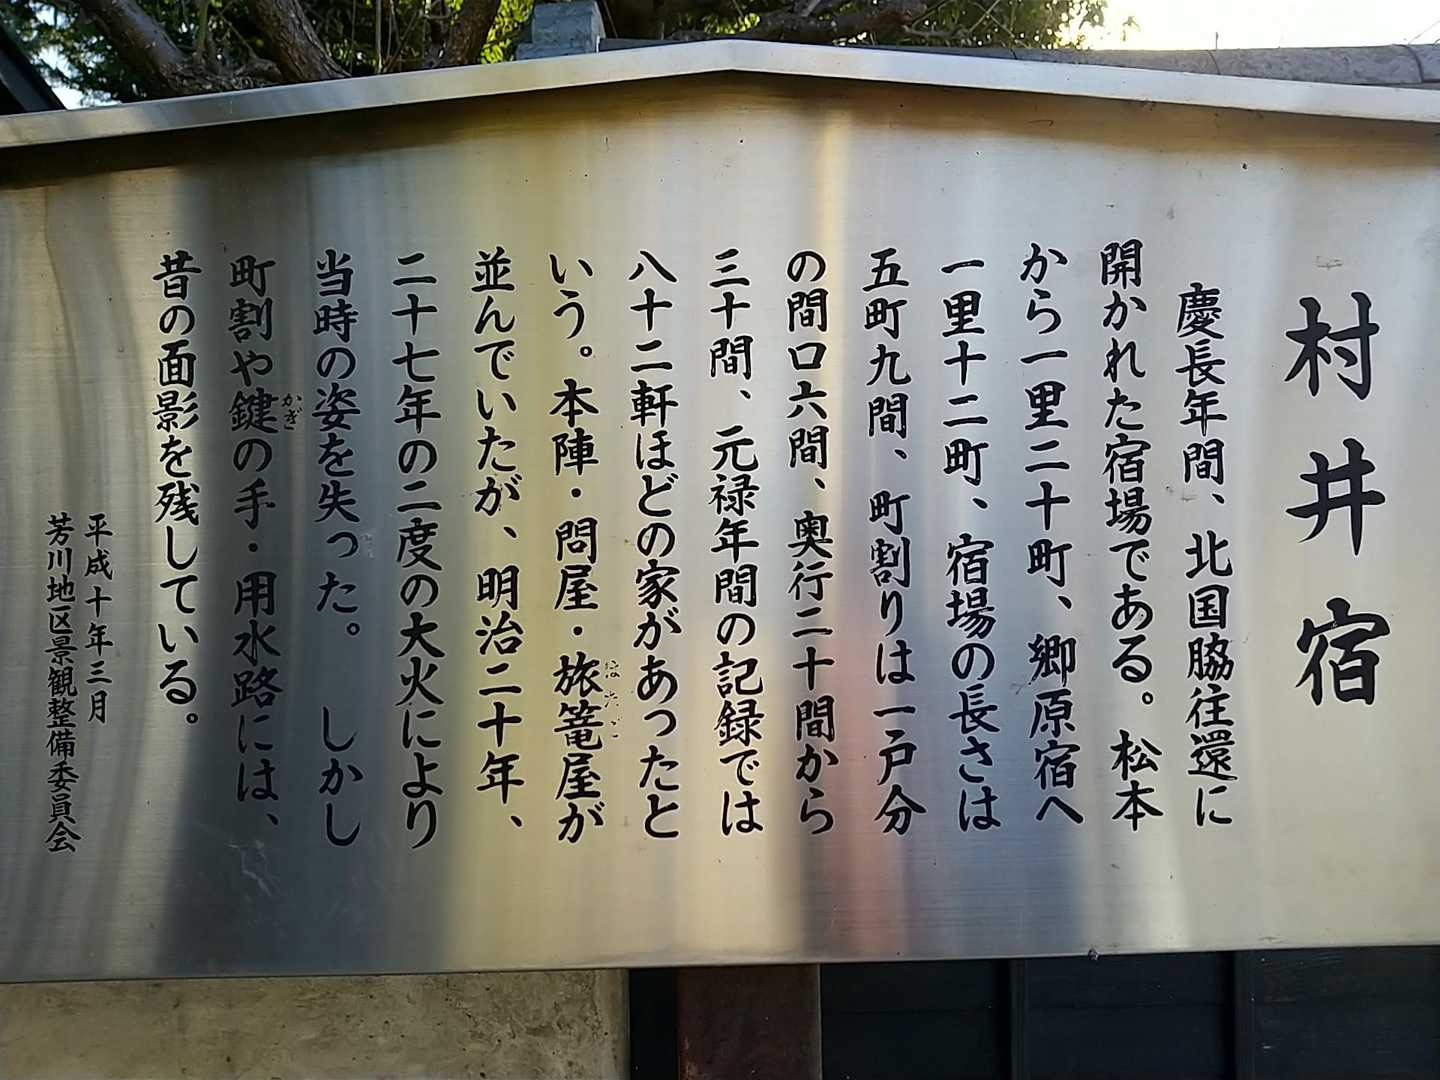 村井宿
慶長年間、北国脇往還に
開かれた宿場である。松本
から一里二十町、郷原宿へ
一里十二町、宿場の長さは
五町九間、町割りは一戸分
の間口六間、奥行二十間から
三十間、元禄年間の記録では
八十二軒ほどの家があったと
いう。本陣・問屋・旅篭屋が
はたご
並んでいたが、明治二十年、
二十七年の二度の大火により
当時の姿を失った。しかし
町割や鍵の手・用水路には、
かぎ
昔の面影を残している。
平成十年三月
芳川地区景観整備委員会